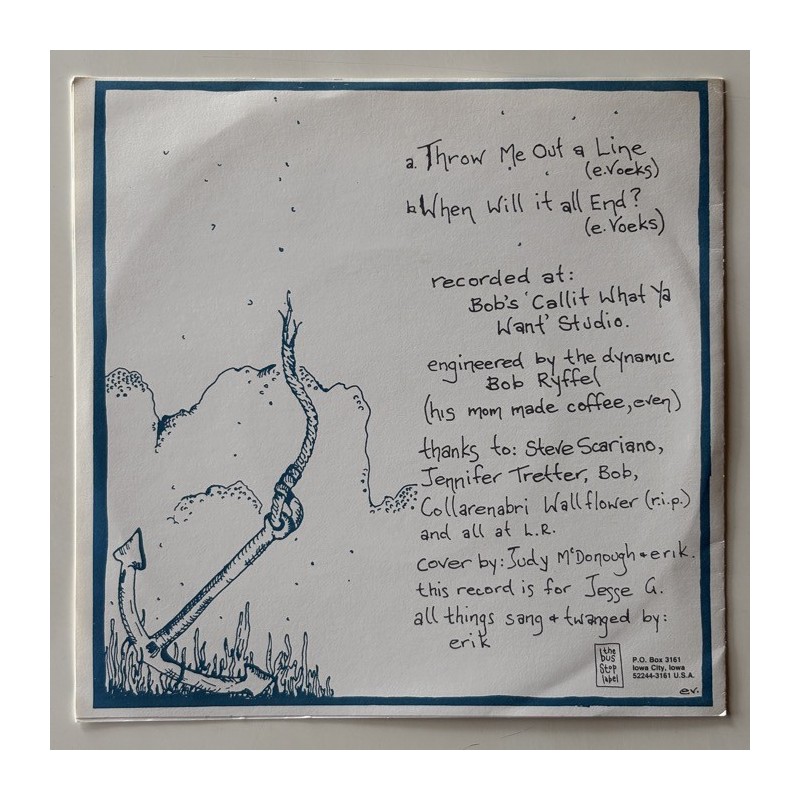 a. Throw Me Out a Line
(e. Voeks)
b. When Will it all End?
(e. Voeks)
recorded at:
Bob's 'Callit What Ya
Want' Studio.
engineered by the dynamic
Bob Ryffel
(his mom made coffee, even)
thanks to: Steve Scariano,
Jennifer Tretter, Bob,
Collarenabri Wallflower (r.i.p.)
and all at L.R.
cover by: Judy McDonough + erik.
this record is for Jesse G.
all things sang + twanged by:
erik
the
bus
stop
label
P.O. Box 3161
Iowa City, Iowa
52244-3161 U.S.A.
e.v.